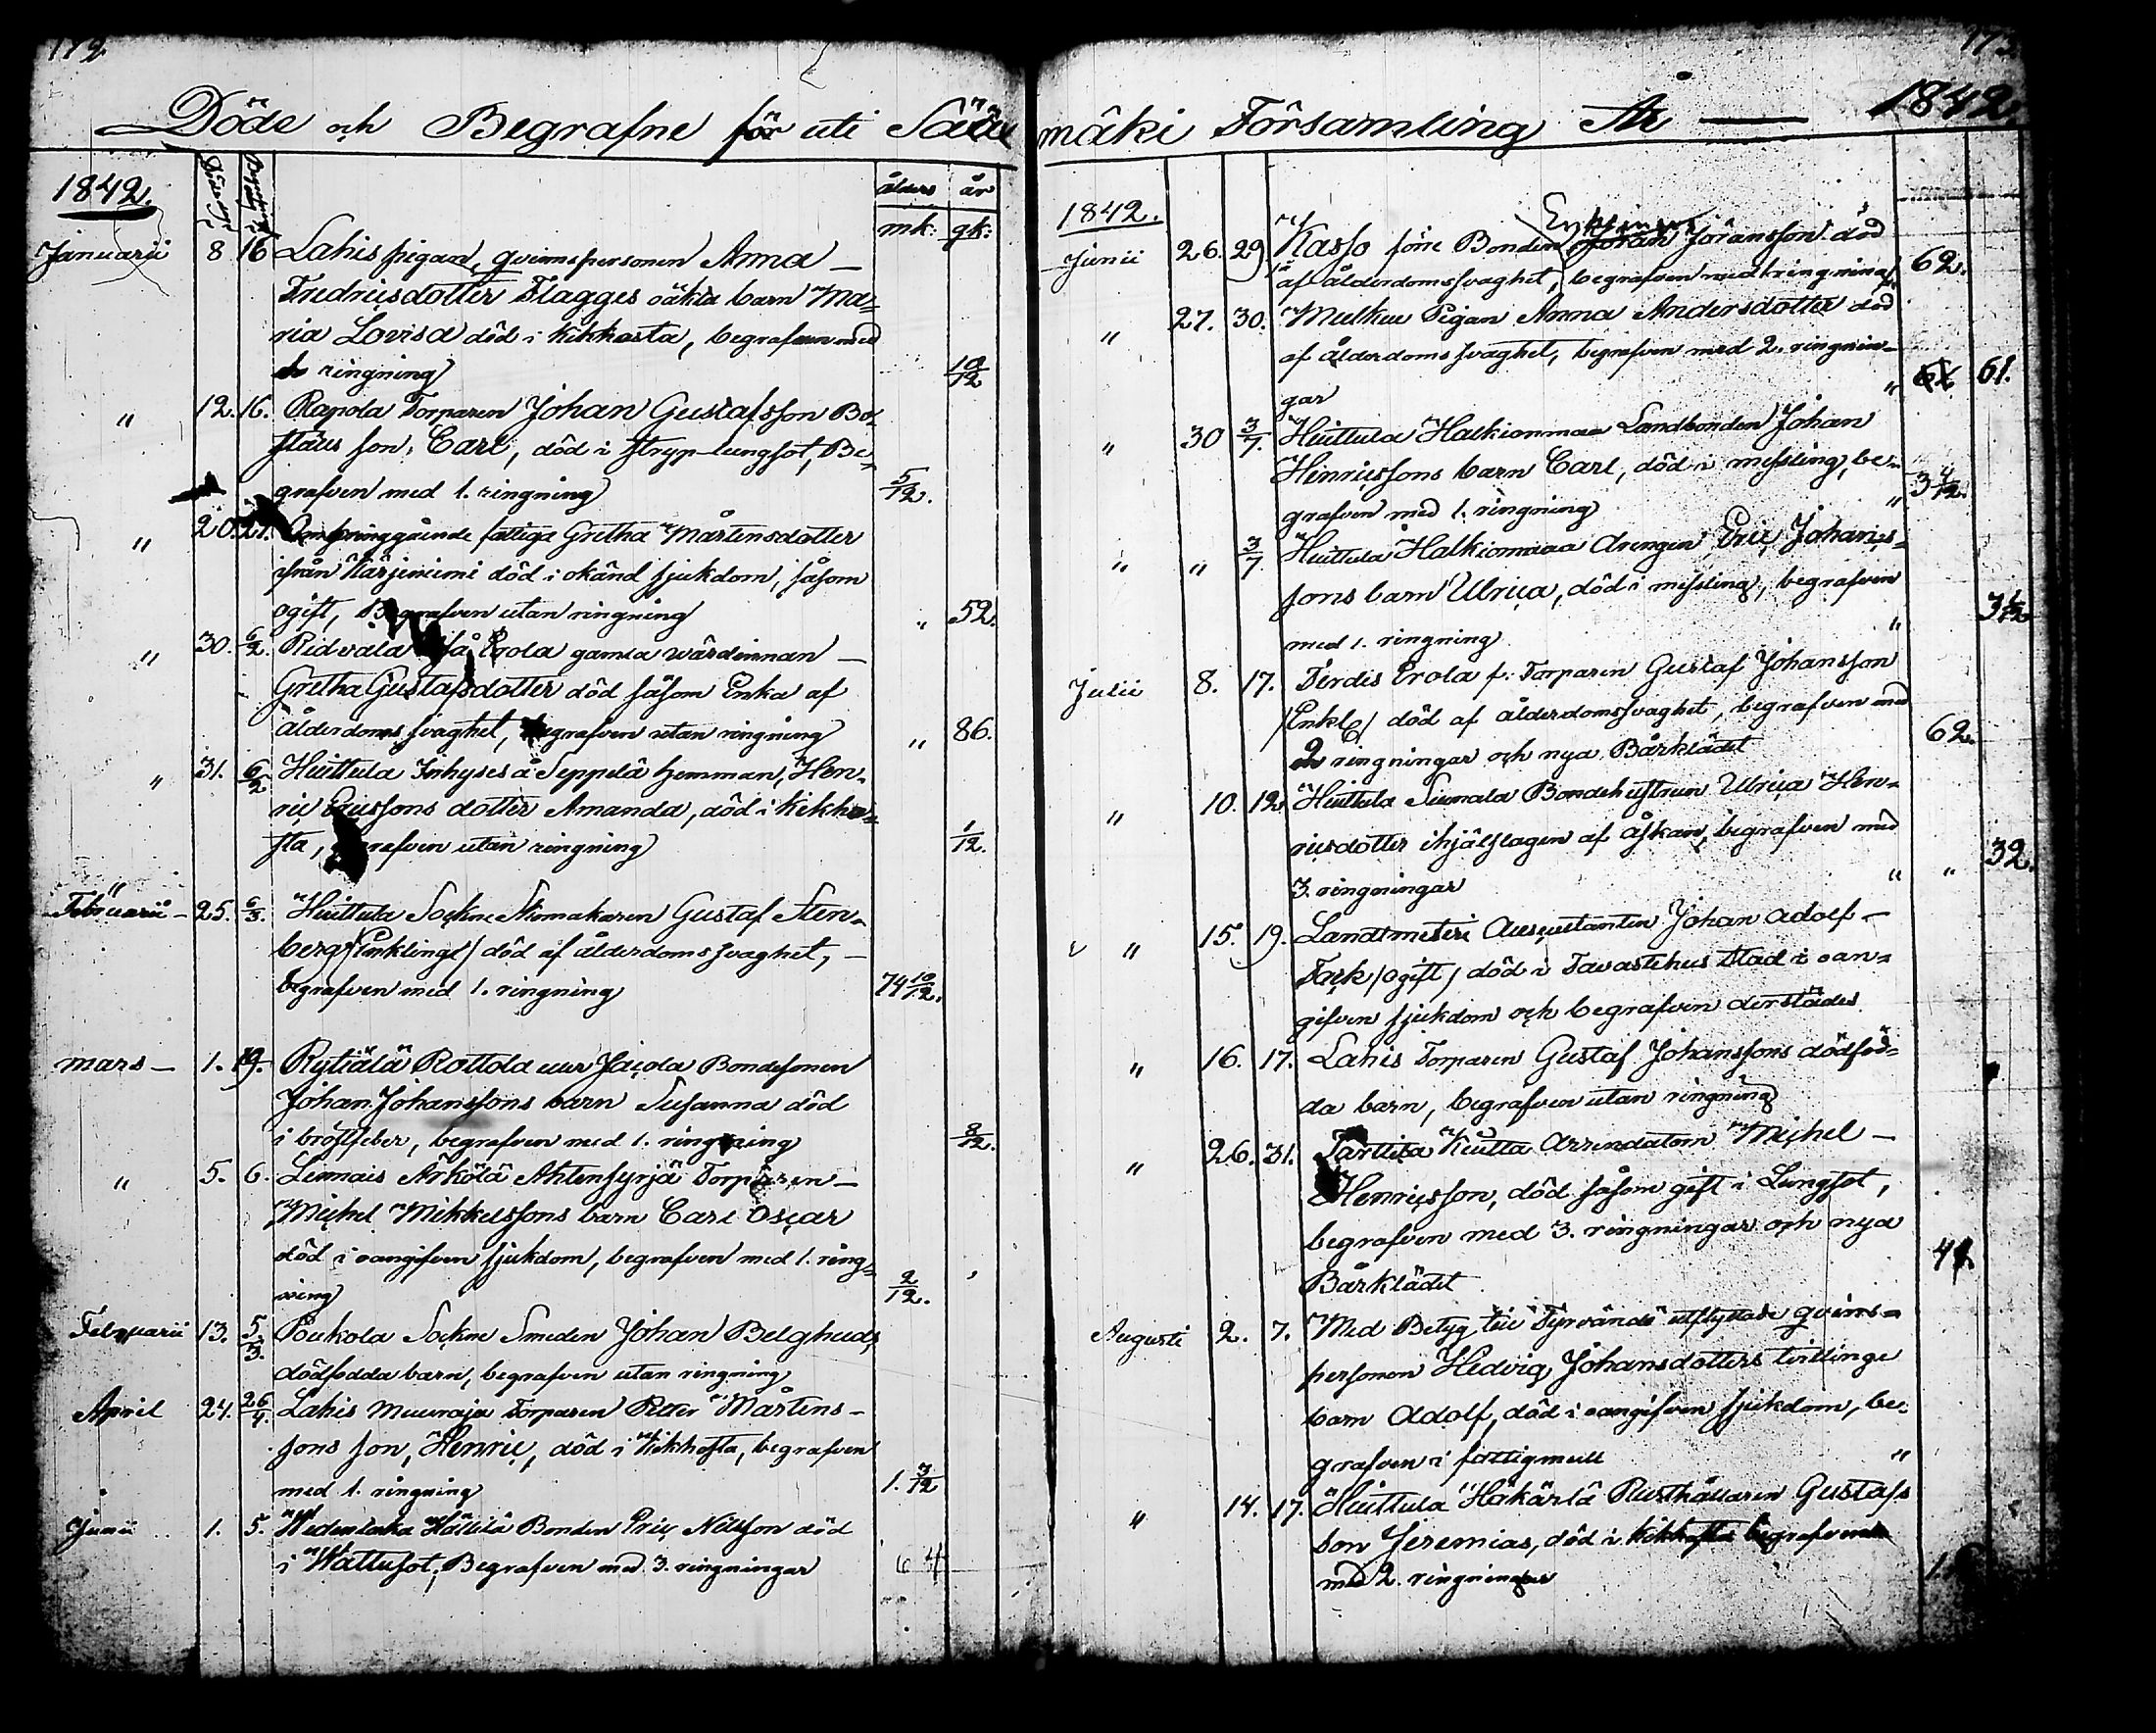 172
Döde och Begrafne för uti Sääx
1842.
ålders år
mk: qk:
Januarii 8 16 Lahis pigan, qvinnspersonen Anna
Fredricsdotter Flagges oäkta barn Ma=
ria Lovisa död i Kikhosta, begrafven med
ringning 10/12
" 12. 16. Rapola Torparen Johan Gustafsson Bo=
ställs son, Carl, död i stryp-lungsot, Be=
grafven med 1. ringning 5/12.
" 20. 27. Omkringgående fattiga Gretha Mårtensdotter
ifrån Kärjeniemi död i okänd sjukdom, såsom
ogift, Begrafven utan ringning " 52.
" 30. 6/2. Ridvala Erola gamla wärdinnan
Gretha Gustafsdotter död såsom Enka af
ålderdomssvaghet, begrafven utan ringning " 86.
" 31. 6/2 Huittula Inhyses å Seppelä hemman, Hen=
ric Ericssons dotter Amanda, död i Kikho=
sta, grafven utan ringning 1/12.
"
Februarii 25. 6/3. Huittula Sockne Skomakaren Gustaf Sten=
berg /Enkling/ död af ålderdomssvaghet,
begrafven med 1. ringning 74 10/12.
mars 1. 19. Rytiälä Rottola eller Jacola Bondesonen
Johan Johanssons barn Susanna död
i bröstfeber, begrafven med 1. ringning 8/12.
" 5. 6. Linnais Arkölä Ahtensyrjä Torparen
Michel Mikkelssons barn Carl Oscar
död i oangifven sjukdom, begrafven med 1. ring=
ning 2/12.
Februarii 13. 5/3. Roukola Sockne Smeden Johan Belghuds
dödfödda barn, begrafven utan ringning
April 24. 26/4. Lahis Muuraja Torparen Petter Mårtens=
sons son, Henric, död i Kikhosta, begrafven
med 1. ringning 1. 3/12
Junii 1. 5. Wedentaka Hällilä Bonden Eric Nilsson död
i Wattusot, Begrafven med 3. ringningar 64
173
mäki Församling År 1842.
1842.
Junii 26. 29 Kasso förre Bonden Enklingen Johan Göransson död
af ålderdomssvaghet, begrafven med ringning 62.
" 27. 30. Mulkuu Pigan Anna Andersdotter död
af ålderdomssvaghet, begrafven med 2. ringnin=
gar " 61.
" 30 3/7. Huittula Halkionmaa Landbonden Johan
Henricssons barn Carl, död i messling, be=
grafven med 1. ringning " 3 4/12.
" " 3/7 Huittula Halkiomaa Drengen Eric Johans=
sons barn Ulrica, död i messling, begrafven
med 1. ringning "
Julii 8. 17. Ferdis Erola f: Torparen Gustaf Johansson
/Enkl/ död af ålderdomssvaghet, begrafven med
2 ringningar och nya Bårklädet 62.
" 10. 12 Huittula Simala Bondehustrun Ulrica Hen=
ricsdotter ihjälslagen af åskan, begrafven med
3. ringningar " " 32.
" 15. 19. Landtmäteri Auscultanten Johan Adolf
Tack /ogift/ död i Tavastehus Stad i oan=
gifven sjukdom och begrafven derstädes.
" 16. 17. Lahis Torparen Gustaf Johanssons dödföd=
da barn, begrafven utan ringning
" 26. 31. Tarttila Kiutta Arrendatorn Michel
Henricsson, död såsom gift i Lungsot,
begrafven med 3. ringningar och nya
Bårklädet
Augusti 2. 7. Med Betyg till Tyrvändö utflyttade qvinns=
personen Hedvig Johansdotters tvillinge
barn Adolf, död i oangifven sjukdom, be=
grafven i fattigmull "
" 14. 17. Huittula Häkärlä Rusthållaren Gustafs
Son Jeremias, död i Kikhosta begrafven
med 2. ringningar